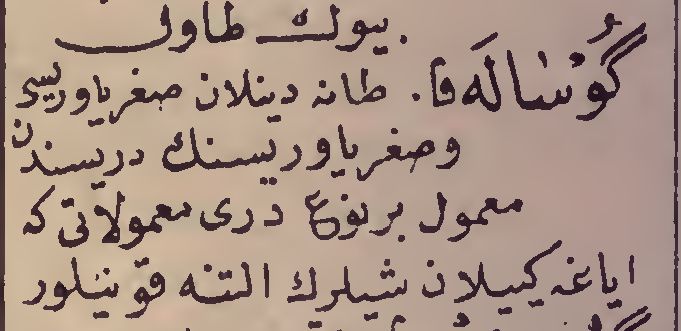 بيوك طاول
گُوسَالَه فا. طانه دينلان صغر ياوريسى
وصغر ياوريسنك دريسندن
معمول برنوع درى معمولاتى كه
اياغه كييلان شيلرك التنه قونيلور